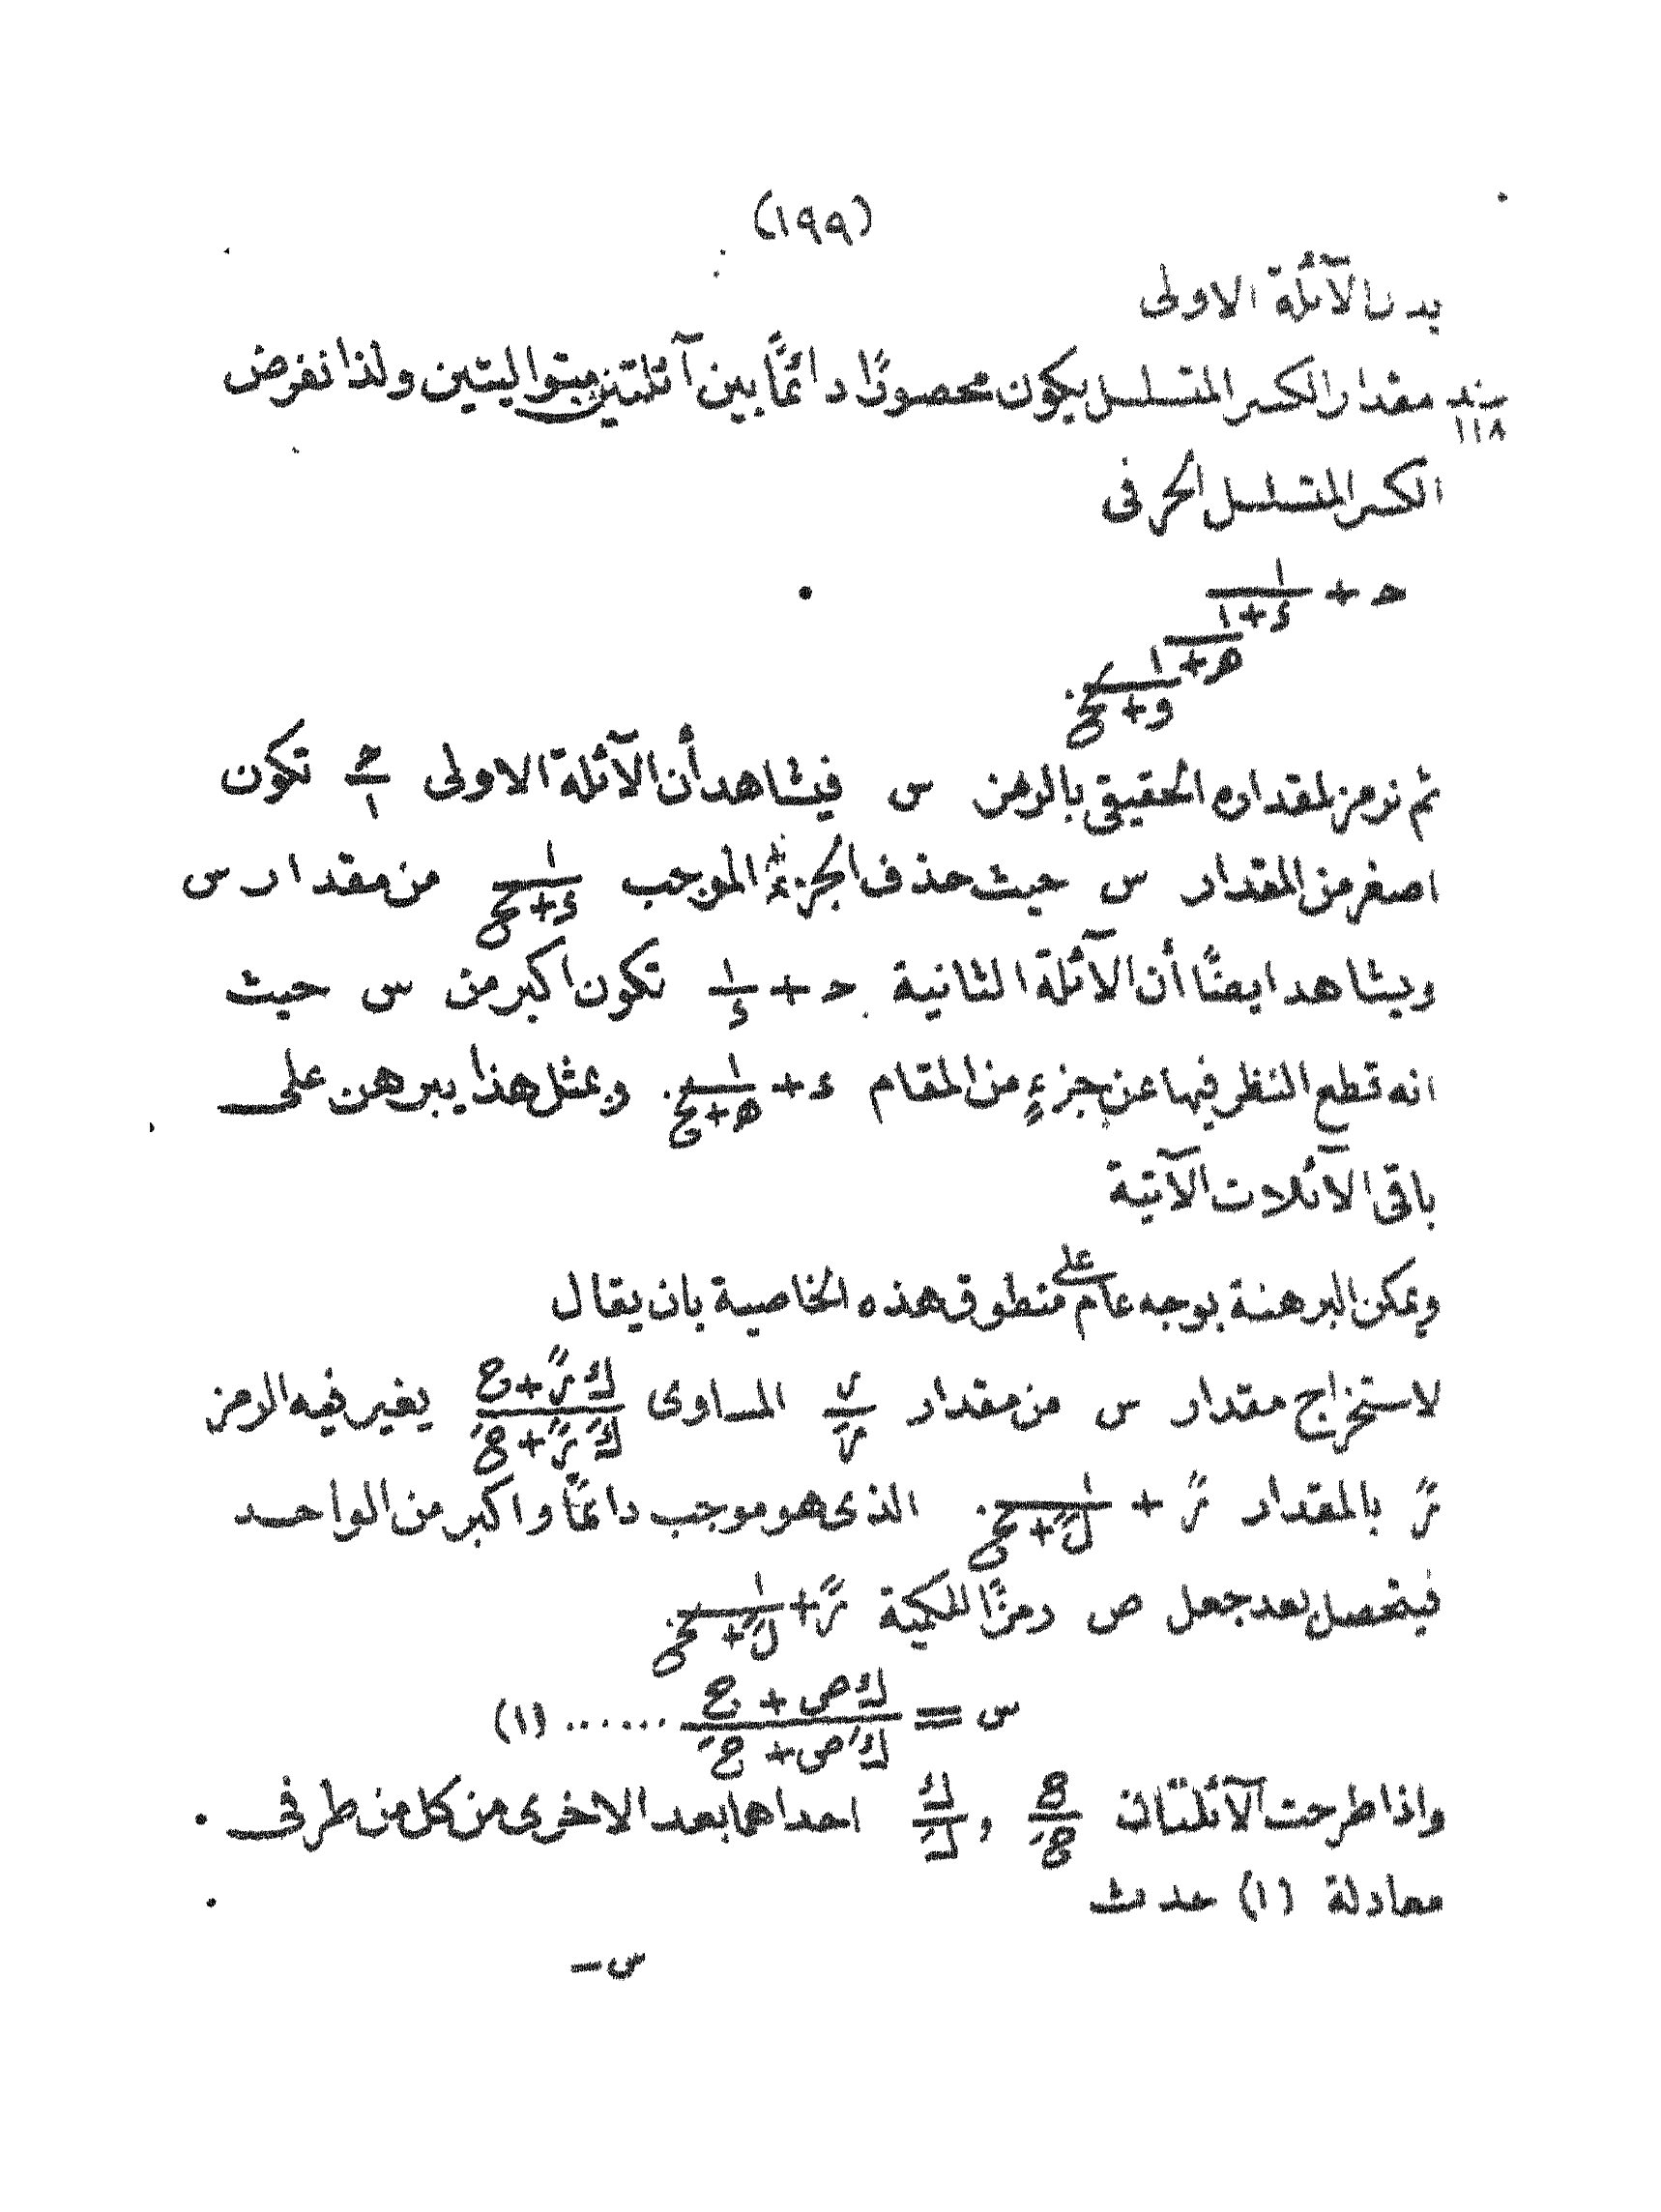 (١٩٩)
بدون الآئلة الاولى
بند ١١٨ مقدار الكسر المتسلسل يكون محصورًا دائمًا بين آئلتين متواليتين ولذا نفرض
الكسر المتسلسل الحرفى
حـ + ١/(ء + ١/(هـ + ١/(و + ع
ثم نرمز لمقداره الحقيقى بالرمز س فيشاهد أن الآئلة الاولى حـ/١ تكون
اصغر من المقدار س حيث حذف الجزء الموجب ١/(ء + ع) من مقدار س
ويشاهد ايضًا أن الآئلة الثانية حـ + ١/ء تكون اكبر من س حيث
انه قطع النظر فيها عن جزءٍ من المقام ء + ١/(هـ + ع) وبمثل هذا يبرهن على
باقى الآئلات الآتية
ويمكن البرهنة بوجه عام على منطوق هذه الخاصية بان يقال
لاستخراج مقدار س من مقدار ر/رَ المساوى (ك رً + ع)/(كَ رً + عَ) يغير فيه الرمز
رً بالمقدار رً + ١/(لً + ع) الذى هو موجب دائمًا واكبر من الواحد
فيتحصل بعد جعل ص رمزًا للكمية رً + ١/(لً + ع)
س = (ك ص + ع)/(كَ ص + عَ) ...... (١)
واذا طرحت الآئلتان ع/عَ , ك/كَ احداهما بعد الاخرى من كل من طرفى
معادلة (١) حدث
س –